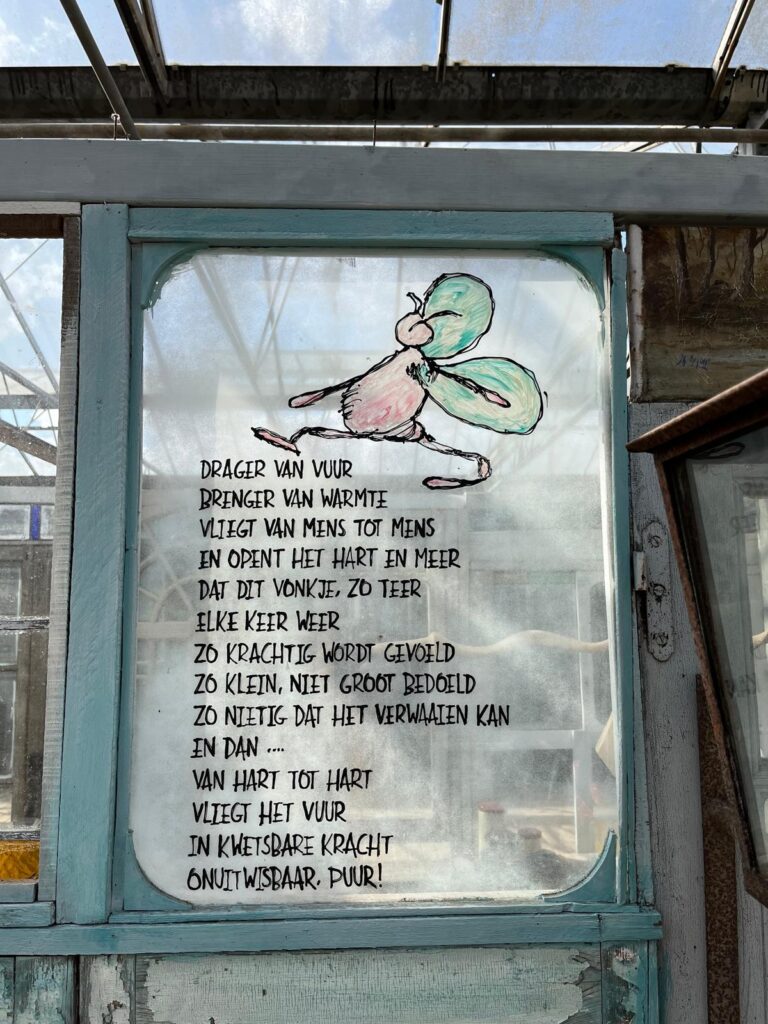 DRAGER VAN VUUR
BRENGER VAN WARMTE
VLIEGT VAN MENS TOT MENS
EN OPENT HET HART EN MEER
DAT DIT VONKJE, ZO TEER
ELKE KEER WEER
ZO KRACHTIG WORDT GEVOELD
ZO KLEIN, NIET GROOT BEDOELD
ZO NIETIG DAT HET VERWAAIEN KAN
EN DAN ....
VAN HART TOT HART
VLIEGT HET VUUR
IN KWETSBARE KRACHT
ONUITWISBAAR, PUUR!